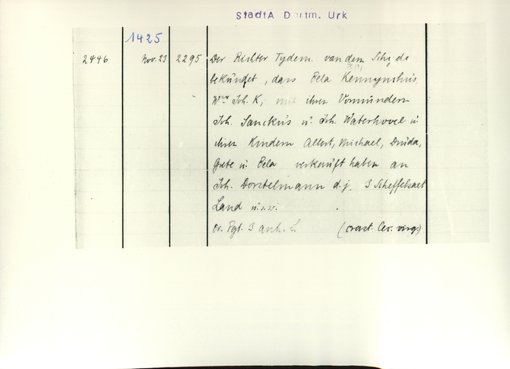 StadtA Dortm. Urk
1425
2446 Nov. 23 2295 Der Richter Tydem. van dem Sch, de
bekundet, dass Pela Kennynchus,
Wwe Joh. K, mit ihren Vormündern
Joh. Sanckus u Joh Waterhovel u
ihren Kindern Albert, Michael, Druda,
Gute u Pela verkauft haben an
Joh. Dorstelmann d. j. 3 Scheffelsaat
Land u.s.w.
Or. Pgt. 3 anh. S. (crast. Cec. virg.)